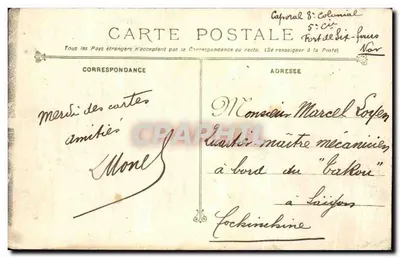 CARTE POSTALE
Tous les Pays étrangers n'acceptent pas la Correspondance au recto. (Se renseigner à la Poste)
Caporal 8e Colonial
5e Cie
Fort de Six-fours
Var
CORRESPONDANCE
ADRESSE
Merci des cartes
amitiés
Monsieur Marcel
Quartier-maître mécanicien
à bord du "Takou"
à Saïgon
Cochinchine